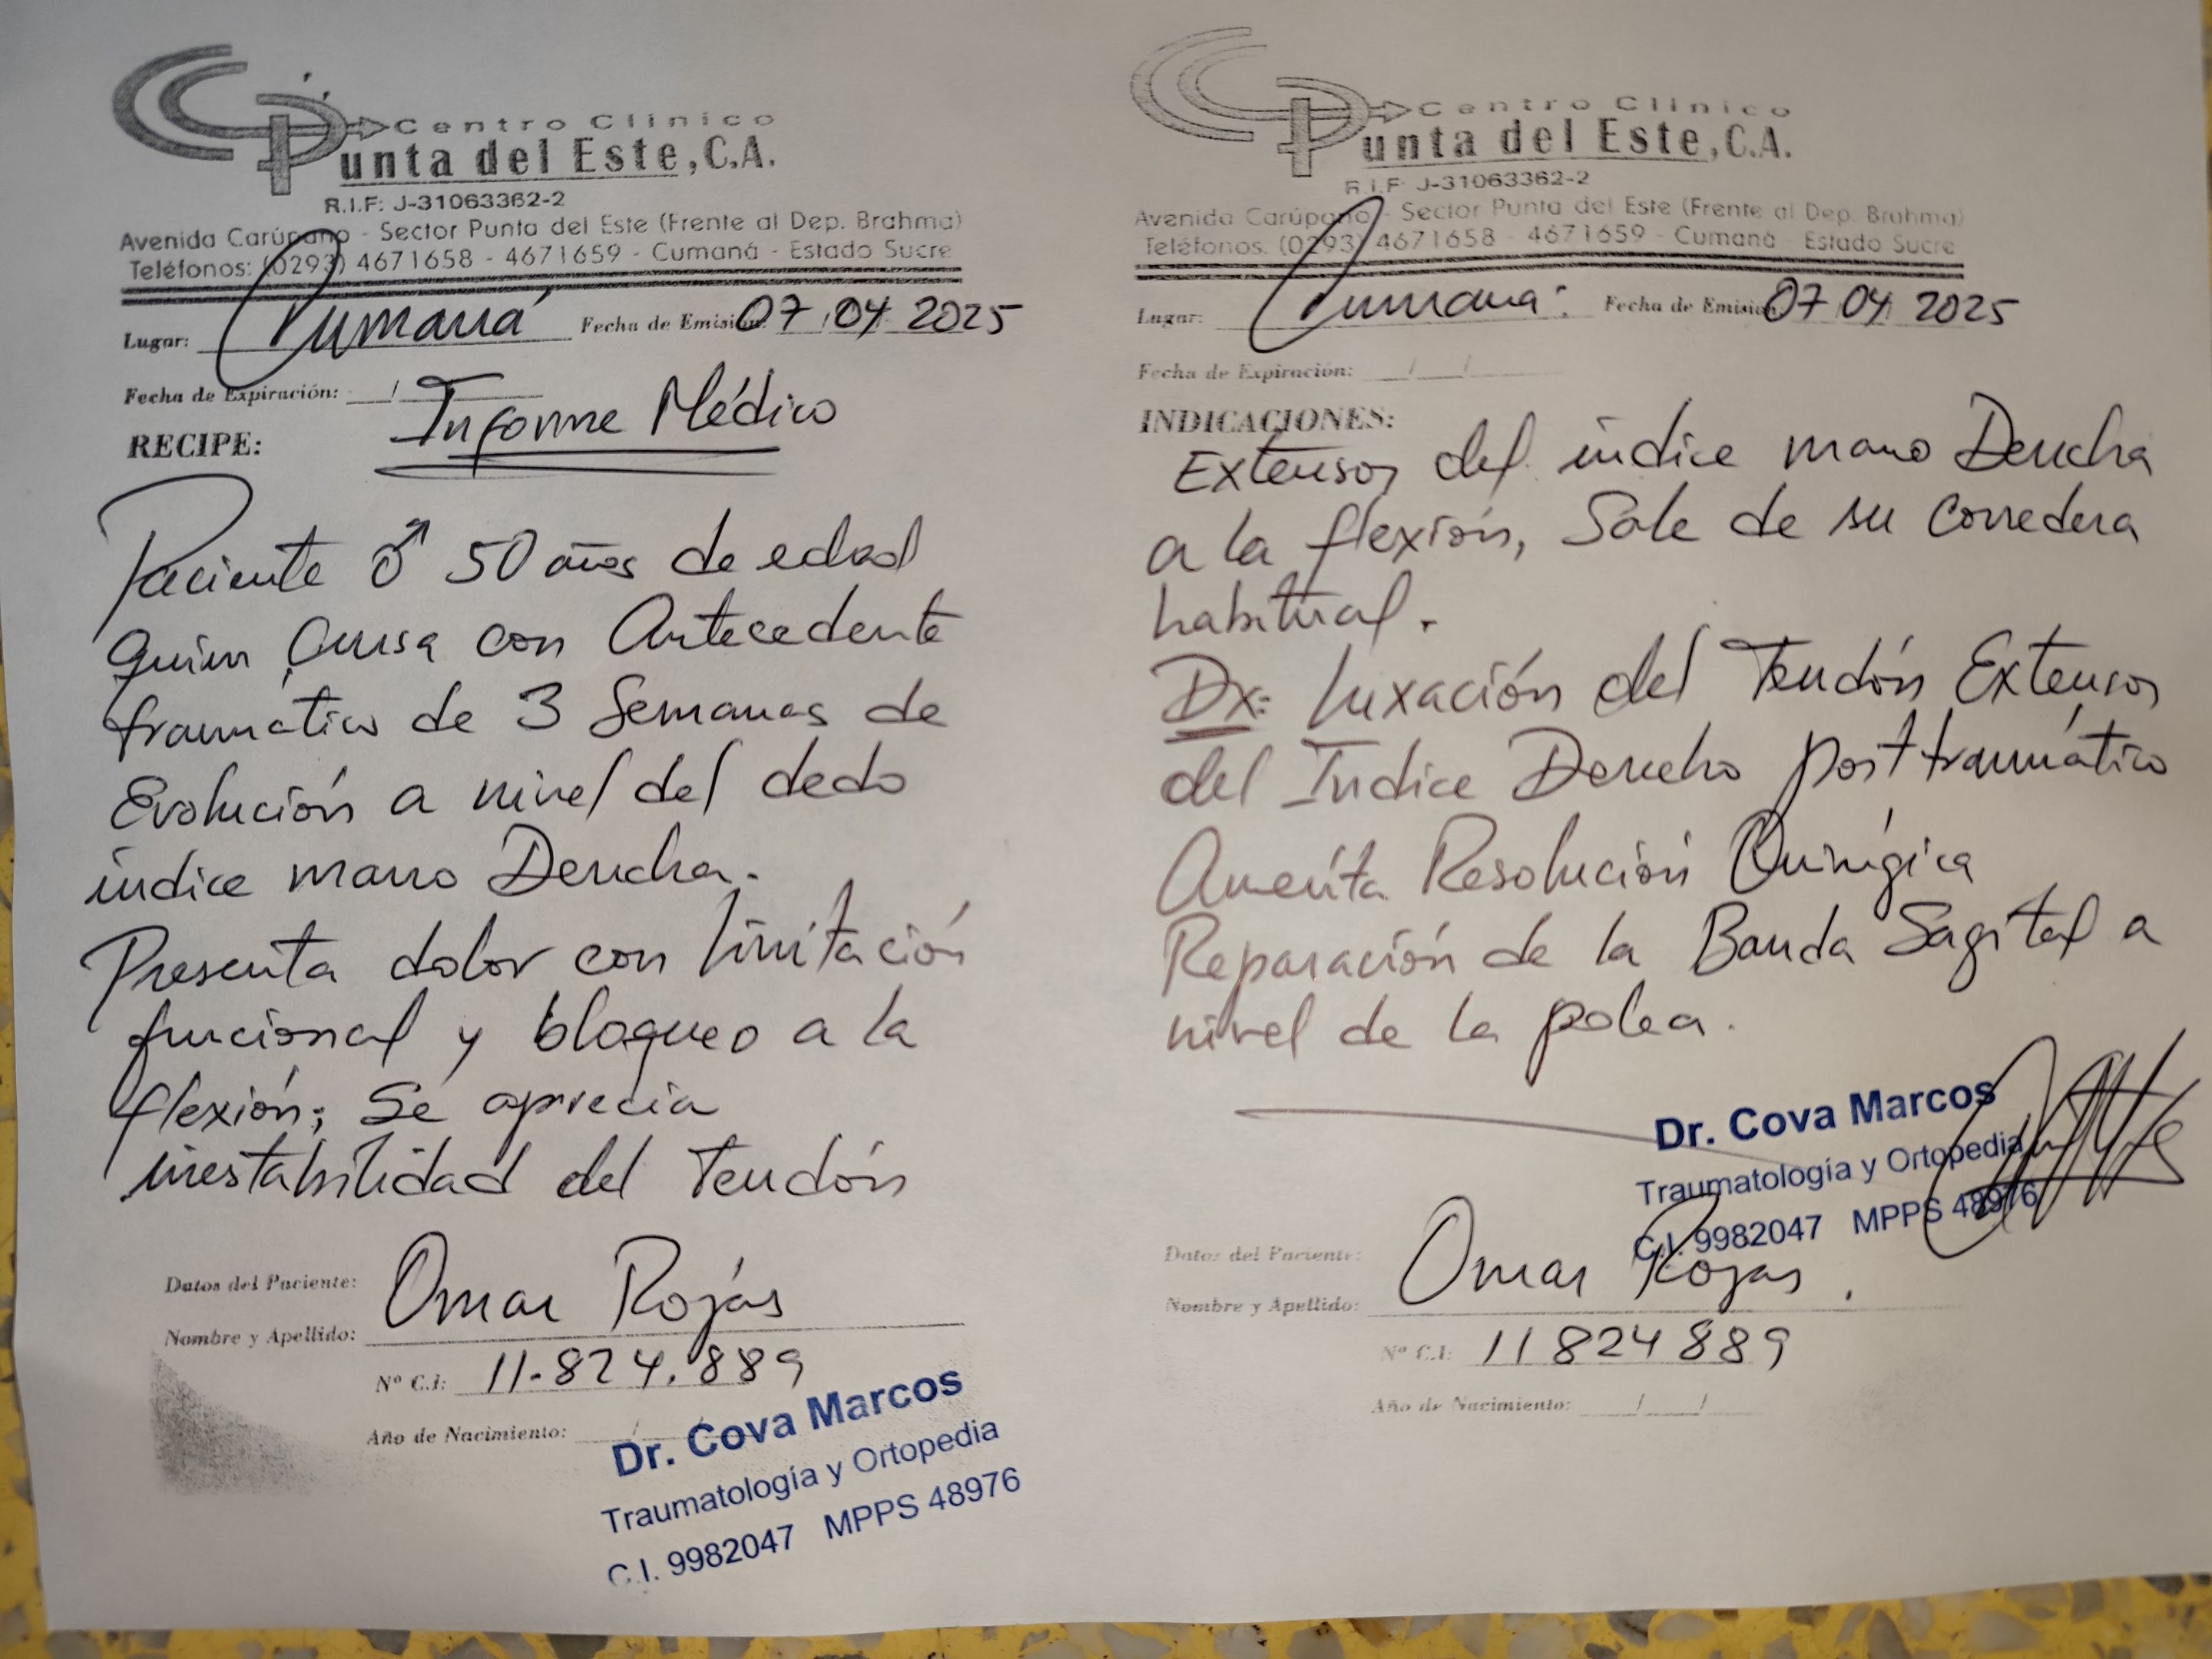 Centro Clínico
Punta del Este, C.A.
R.I.F: J-31063362-2
Avenida Carúpano - Sector Punta del Este (Frente al Dep. Brahma)
Teléfonos: (0293) 4671658 - 4671659 - Cumaná - Estado Sucre
Lugar: Cumaná Fecha de Emisión: 07 / 04 / 2025
Fecha de Expiración: __/
RECIPE: Informe Médico
Paciente ♂ 50 años de edad
quien cursa con Antecedente
traumático de 3 Semanas de
Evolución a nivel del dedo
índice mano Derecha.
Presenta dolor con limitación
funcional y bloqueo a la
flexión; Se aprecia
inestabilidad del Tendón
Datos del Paciente:
Nombre y Apellido: Omar Rojas
Nº C.I: 11.824.889
Año de Nacimiento: __/
Dr. Cova Marcos
Traumatología y Ortopedia
C.I. 9982047 MPPS 48976
Centro Clínico
Punta del Este, C.A.
R.I.F: J-31063362-2
Avenida Carúpano - Sector Punta del Este (Frente al Dep. Brahma)
Teléfonos: (0293) 4671658 - 4671659 - Cumaná - Estado Sucre
Lugar: Cumana: Fecha de Emisión 07 04 2025
Fecha de Expiración: __/__/__
INDICACIONES:
Extensor del índice mano Derecha
a la flexión, Sale de su corredera
habitual.
Dx: Luxación del Tendón Extensor
del Índice Derecho post traumático
Amerita Resolución Quirúgica
Reparación de la Banda Sagital a
nivel de la polea.
Dr. Cova Marcos
Traumatología y Ortopedia
C.I. 9982047 MPPS 48976
Datos del Paciente:
Nombre y Apellido: Omar Rojas.
Nº C.I: 11824889
Año de Nacimiento: __/__/__